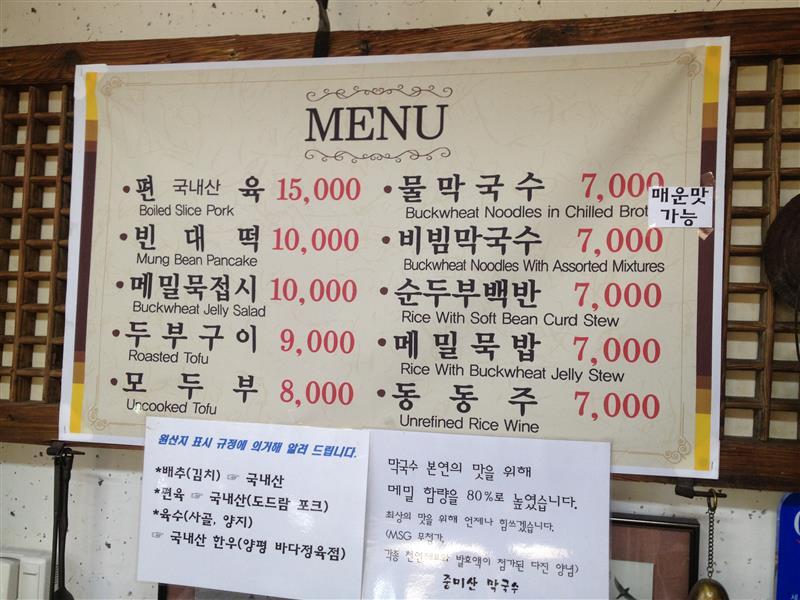 MENU
• 편 국내산 육 15,000
Boiled Slice Pork
• 빈 대 떡 10,000
Mung Bean Pancake
• 메밀묵접시 10,000
Buckwheat Jelly Salad
• 두 부 구 이 9,000
Roasted Tofu
• 모 두 부 8,000
Uncooked Tofu
• 물 막 국 수 7,000
Buckwheat Noodles in Chilled
매운맛
가능
• 비빔막국수 7,000
Buckwheat Noodles With Assorted Mixtures
• 순두부백반 7,000
Rice With Soft Bean Curd Stew
• 메 밀 묵 밥 7,000
Rice With Buckwheat Jelly Stew
• 동 동 주 7,000
Unrefined Rice Wine
원산지 표시 규정에 의거해 알려 드립니다.
*배추(김치) ☞ 국내산
*편육 ☞ 국내산(도드람 포크)
*육수(사골, 양지)
☞ 국내산 한우(양평 바다정육점)
막국수 본연의 맛을 위해
메밀 함량을 80%로 높였습니다.
최상의 맛을 위해 언제나 힘쓰겠습니다.
(MSG 무첨가,
각종 발효액이 첨가된 다진 양념)
중미산 막국수